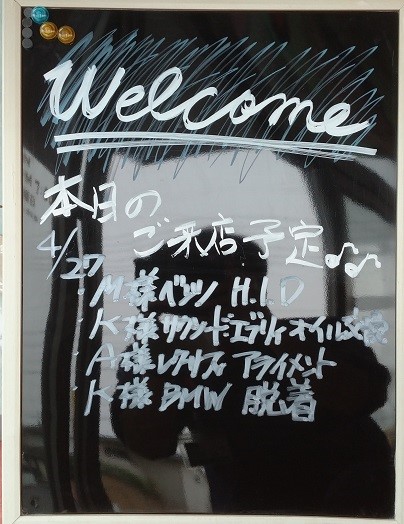 Welcome
本日の
4/27 ご来店予定♪♪
・M様 ベンツ H.I.D
・K様 サクシード・エブリィ オイル交換
・A様 アライメント
・K様 BMW 脱着